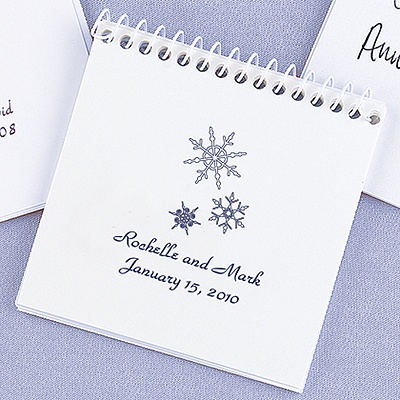 Rochelle and Mark
January 15, 2010